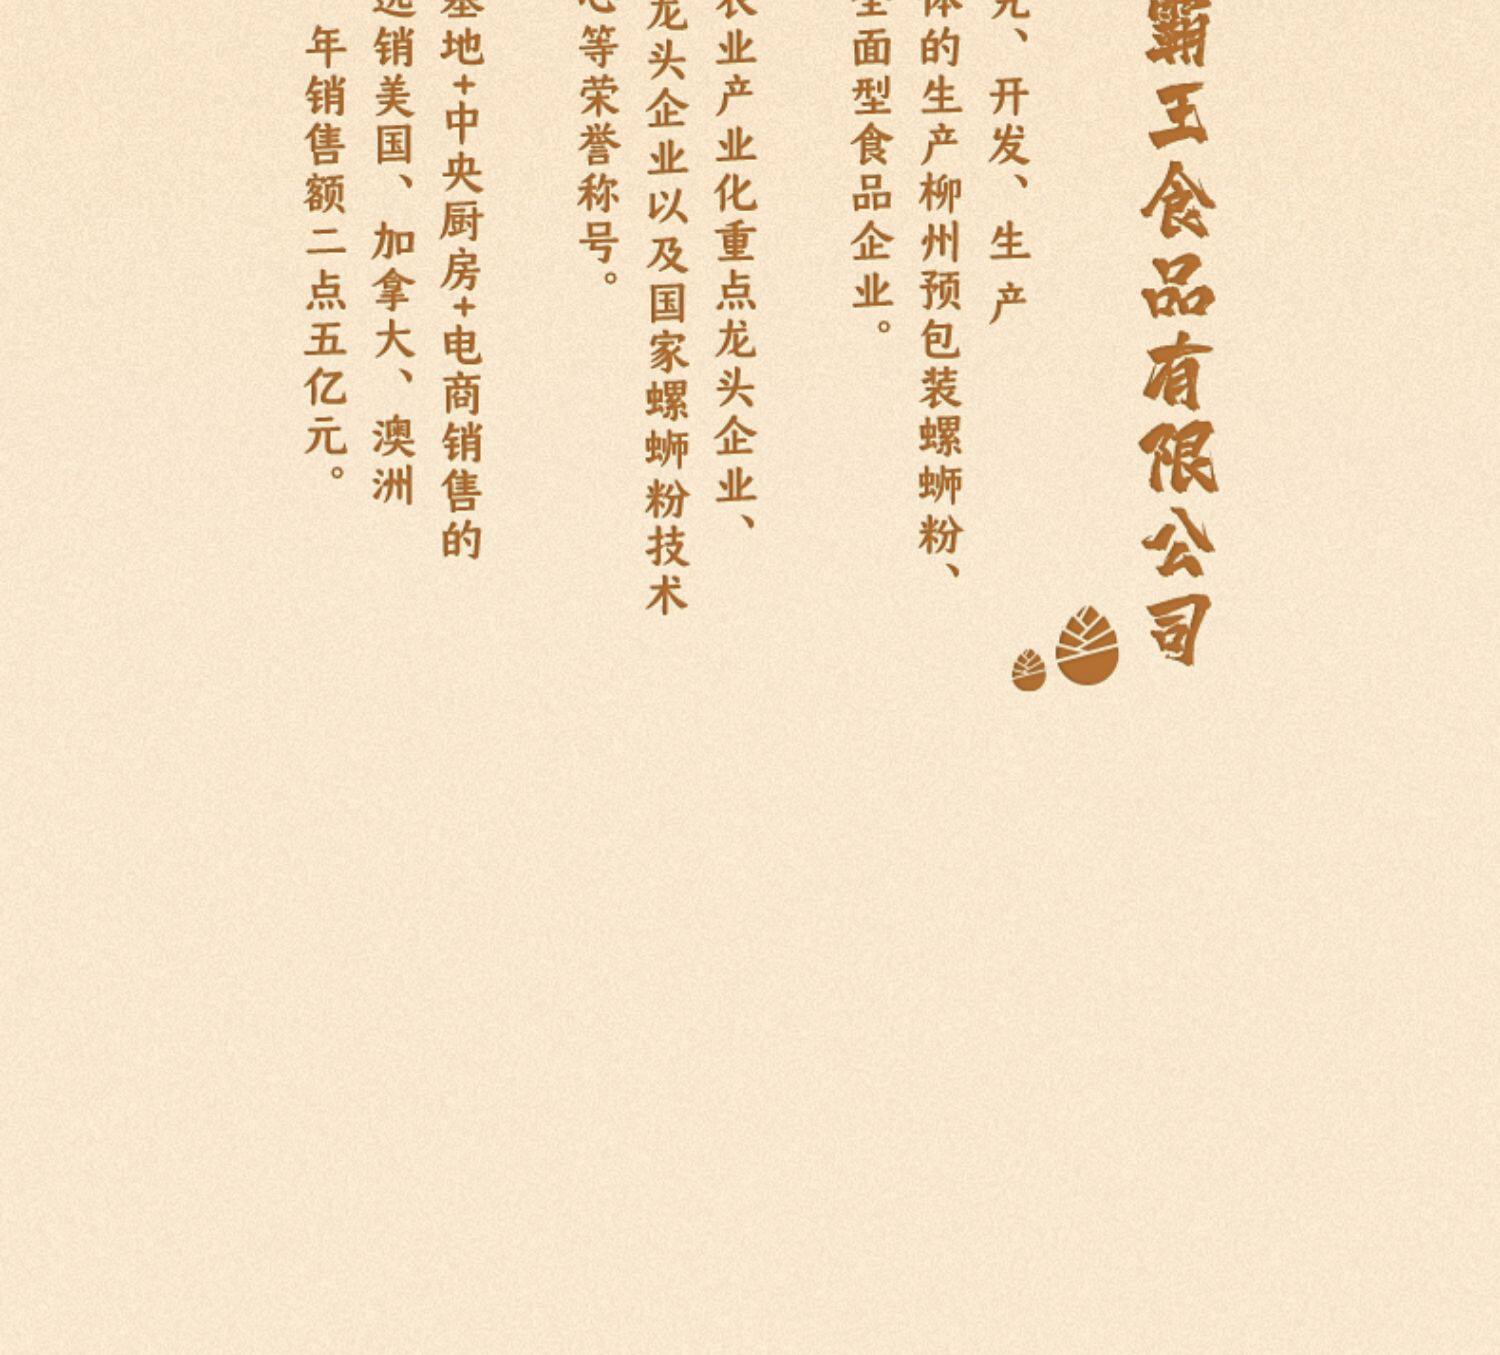 霸王食品有限公司
、开发、生产
的生产柳州预包装螺蛳粉、
面型食品企业。
业产业化重点龙头企业、
龙头企业以及国家螺蛳粉技术
等荣誉称号。
地+中央厨房+电商销售的
销美国、加拿大、澳洲
年销售额二点五亿元。